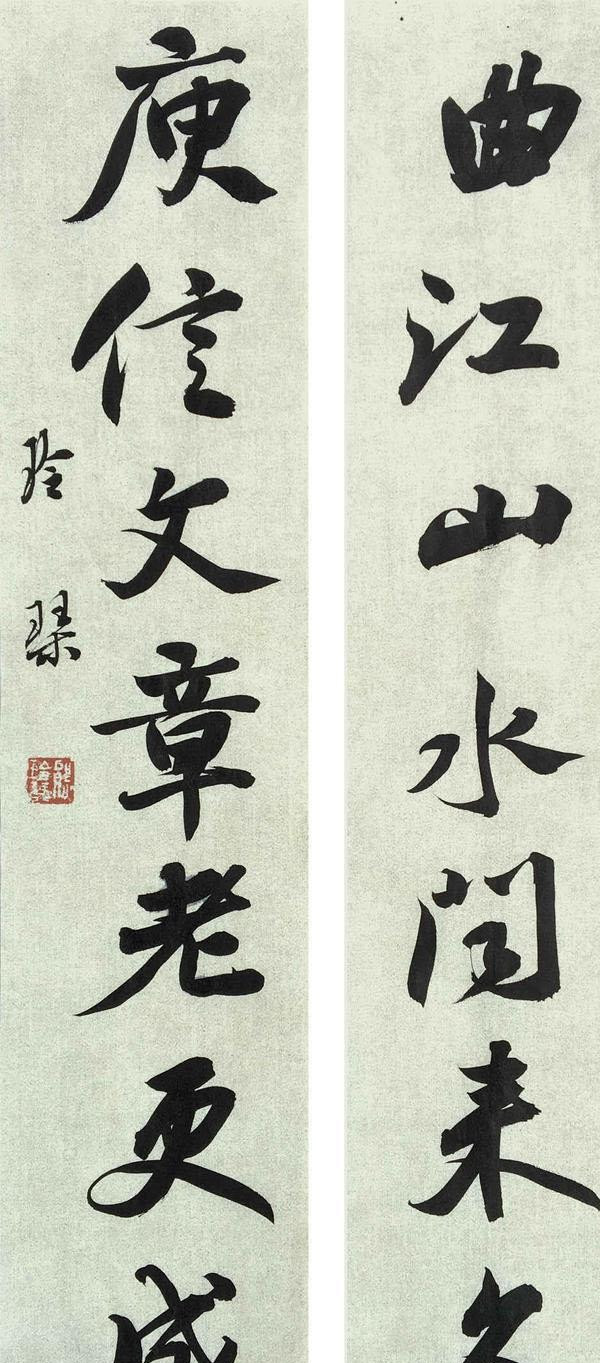 曲江山水闻来久
庾信文章老更成
玲琹